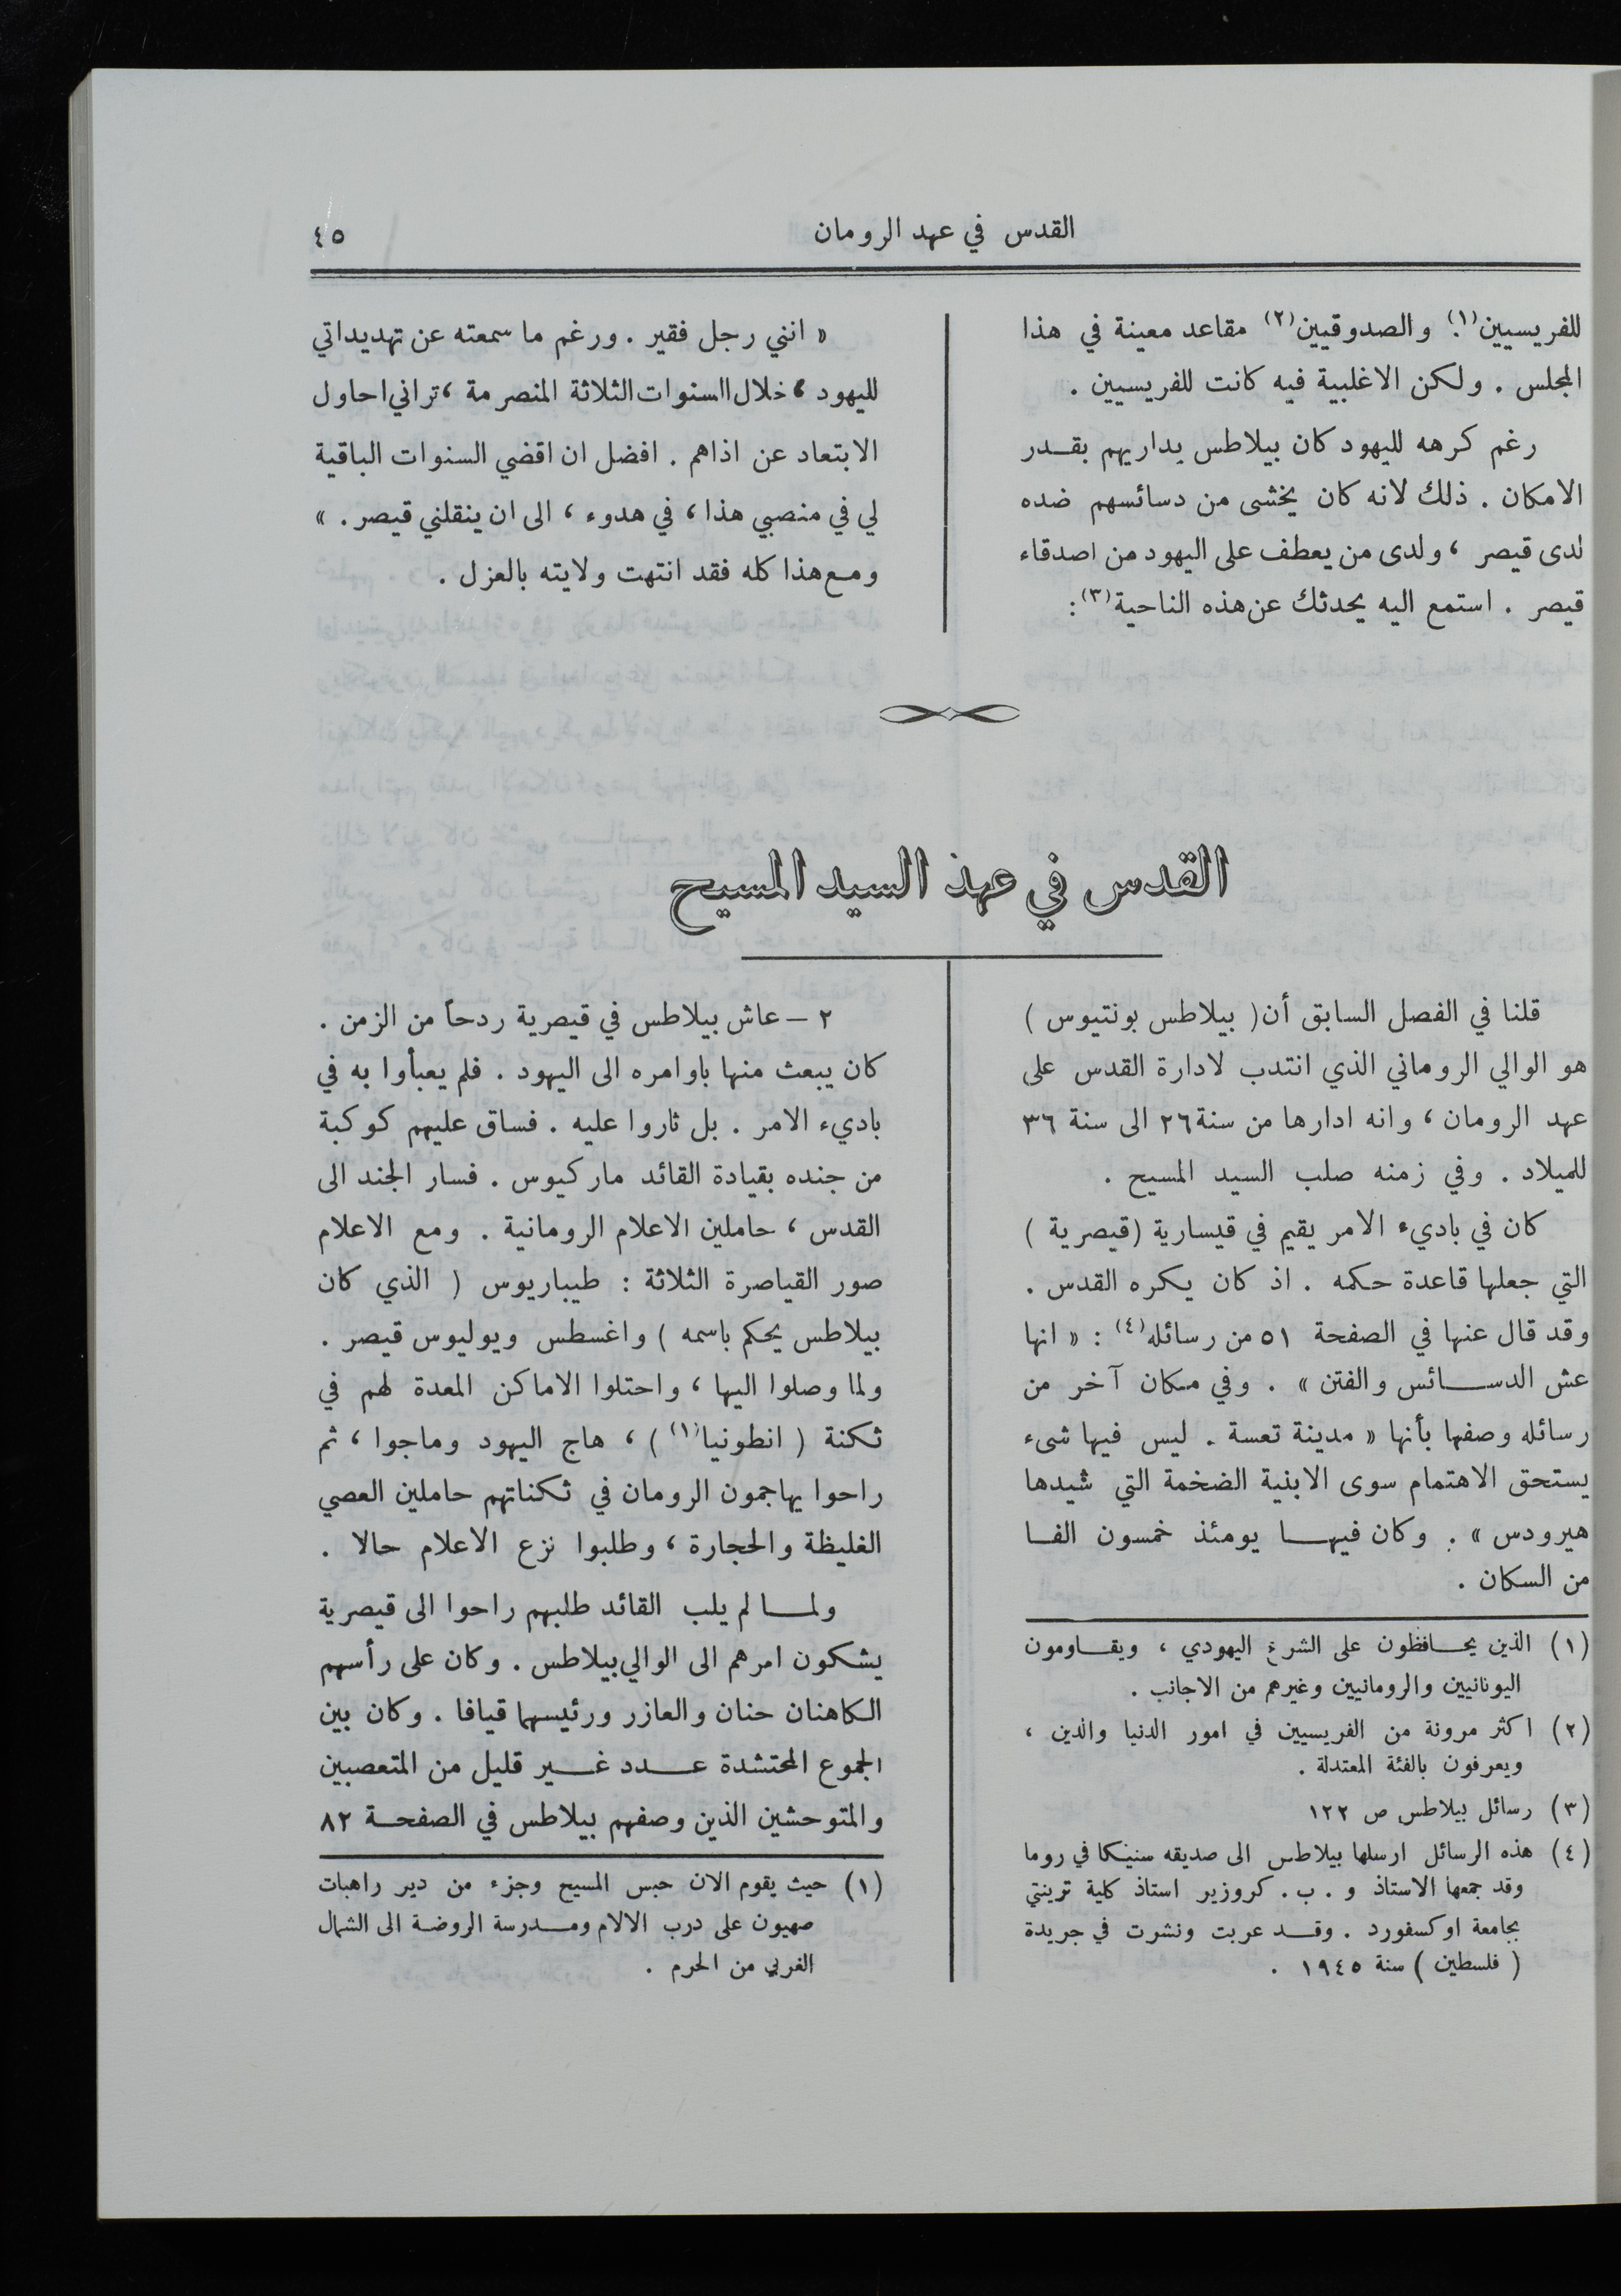 القدس في عهد الرومان
٤٥
للفريسيين(١) والصدوقيين(٢) مقاعد معينة في هذا
المجلس . ولكن الاغلبية فيه كانت للفريسيين .
رغم كرهه لليهود كان بيلاطس يداريهم بقدر
الامكان . ذلك لانه كان يخشى من دسائسهم ضده
لدى قيصر ، ولدى من يعطف على اليهود من اصدقاء
قيصر . استمع اليه يحدثك عن هذه الناحية(٣) :
« انني رجل فقير . ورغم ما سمعته عن تهديداتي
لليهود ، خلال السنوات الثلاثة المنصرمة ، تراني احاول
الابتعاد عن اذاهم . افضل ان اقضي السنوات الباقية
لي في منصبي هذا ، في هدوء ، الى ان ينقلني قيصر . »
ومع هذا كله فقد انتهت ولايته بالعزل .
القدس في عهد السيد المسيح
قلنا في الفصل السابق أن ( بيلاطس بونتيوس )
هو الوالي الروماني الذي انتدب لادارة القدس على
عهد الرومان ، وانه ادارها من سنة ٢٦ الى سنة ٣٦
للميلاد . وفي زمنه صلب السيد المسيح .
كان في باديء الامر يقيم في قيسارية ( قيصرية )
التي جعلها قاعدة حكمه . اذ كان يكره القدس .
وقد قال عنها في الصفحة ٥١ من رسائله(٤) : « انها
عش الدسائس والفتن » . وفي مكان آخر من
رسائله وصفها بأنها « مدينة تعسة . ليس فيها شىء
يستحق الاهتمام سوى الابنية الضخمة التي شيدها
هيرودس » . وكان فيها يومئذ خمسون الفا
من السكان .
(١) الذين يحافظون على الشرع اليهودي ، ويقاومون
اليونانيين والرومانيين وغيرهم من الاجانب .
(٢) اكثر مرونة من الفريسيين في امور الدنيا والدين ،
ويعرفون بالفئة المعتدلة .
(٣) رسائل بيلاطس ص ١٢٢
(٤) هذه الرسائل ارسلها بيلاطس الى صديقه سنيكا في روما
وقد جمعها الاستاذ و . ب . كروزير استاذ كلية ترينتي
بجامعة اوكسفورد . وقد عربت ونشرت في جريدة
( فلسطين ) سنة ١٩٤٥ .
٢ – عاش بيلاطس في قيصرية ردحاً من الزمن .
كان يبعث منها باوامره الى اليهود . فلم يعبأوا به في
باديء الامر . بل ثاروا عليه . فساق عليهم كوكبة
من جنده بقيادة القائد ماركيوس . فسار الجند الى
القدس ، حاملين الاعلام الرومانية . ومع الاعلام
صور القياصرة الثلاثة : طيباريوس ( الذي كان
بيلاطس يحكم باسمه ) واغسطس ويوليوس قيصر .
ولما وصلوا اليها ، واحتلوا الاماكن المعدة لهم في
ثكنة ( انطونيا(١) ) ، هاج اليهود وماجوا ، ثم
راحوا يهاجمون الرومان في ثكناتهم حاملين العصي
الغليظة والحجارة ، وطلبوا نزع الاعلام حالا .
ولما لم يلب القائد طلبهم راحوا الى قيصرية
يشكون امرهم الى الوالي بيلاطس . وكان على رأسهم
الكاهنان حنان والعازر ورئيسهما قيافا . وكان بين
الجموع المحتشدة عدد غير قليل من المتعصبين
والمتوحشين الذين وصفهم بيلاطس في الصفحة ٨٢
(١) حيث يقوم الان حبس المسيح وجزء من دير راهبات
صهيون على درب الالام ومدرسة الروضة الى الشمال
الغربي من الحرم .